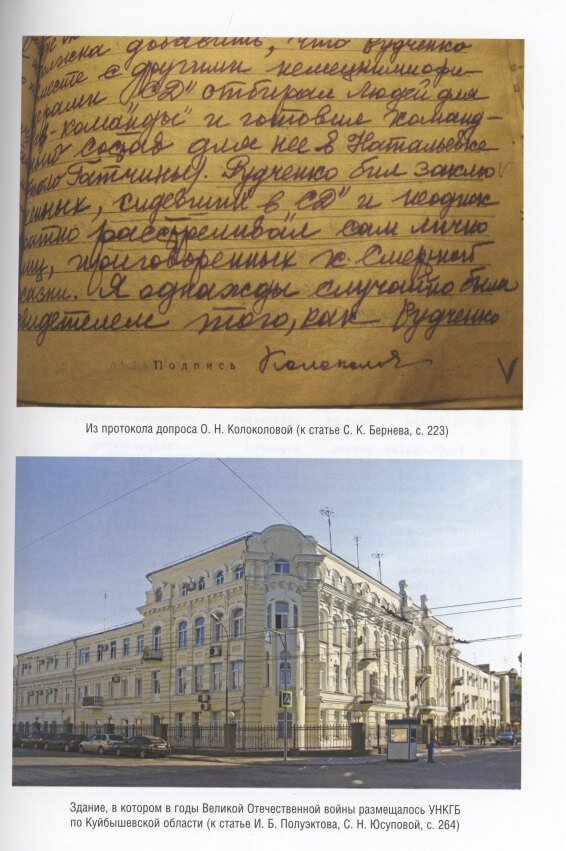 должна добавить, что Рудченко
вместе с другими немецкими офи-
церами "СД" отбирал людей для
"команды" и готовил команд-
состав для нее в Натальевке
Гатчины). Рудченко бил заклю
ченных, сидевших в "СД" и неоднок
ратно расстреливал сам лично
лиц, приговоренных к смертной
казни. Я однажды случайно была
свидетелем того, как Рудченко
Подпись Колоколова
Из протокола допроса О. Н. Колоколовой (к статье С. К. Бернева, с. 223)
Здание, в котором в годы Великой Отечественной войны размещалось УНКГБ
по Куйбышевской области (к статье И. Б. Полуэктова, С. Н. Юсуповой, с. 264)